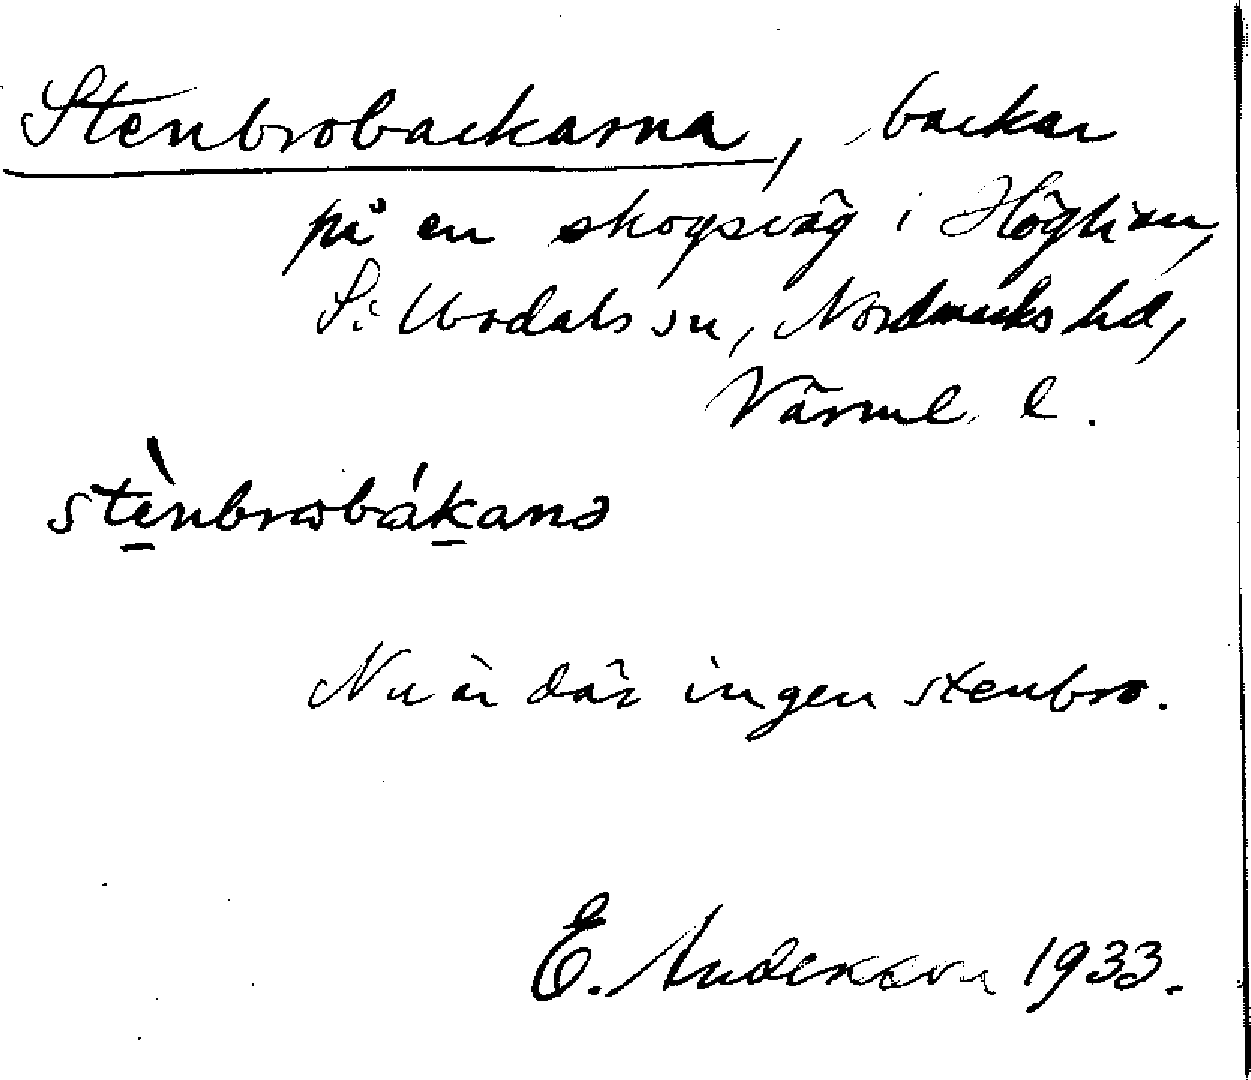 Stenbrobackarna, backar
på en skogsväg i Höglian,
S: Årdals sn, Nordmarks hd,
Värml. l.
stènbrobákanə
Nu är där ingen stenbro.
E. Andersson 1933.